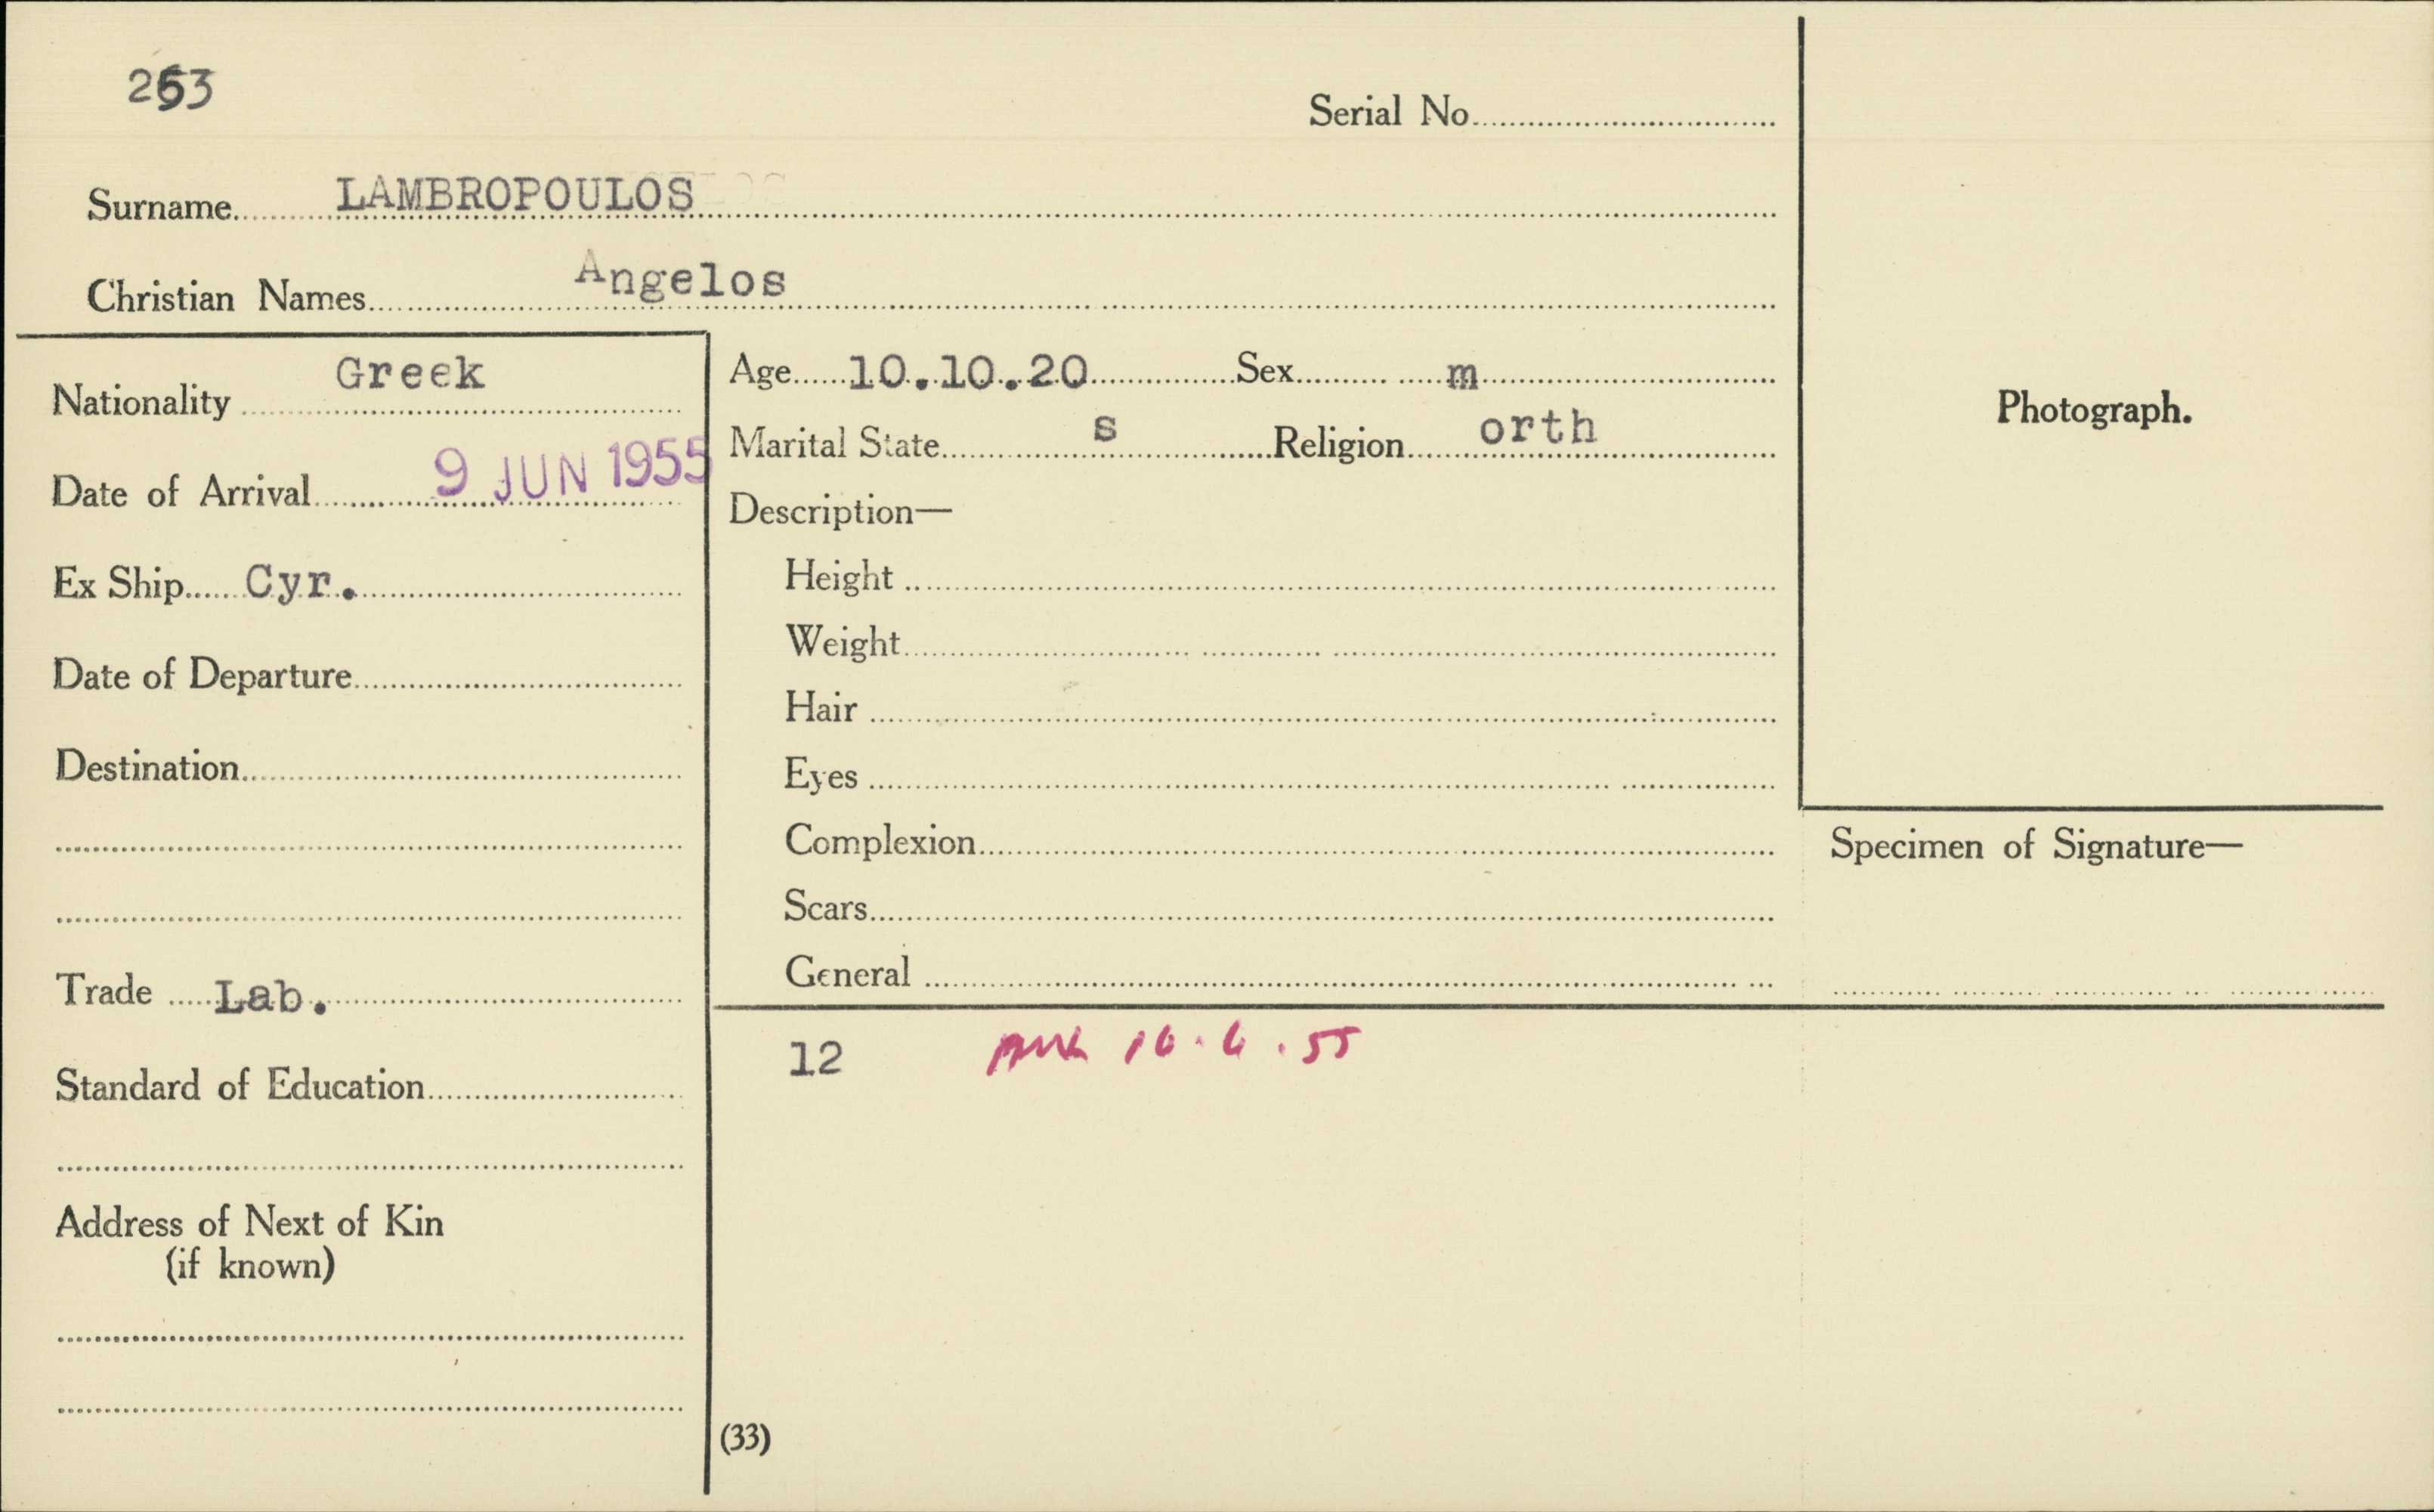 253
Serial No.
Surname LAMBROPOULOS
Christian Names Angelos
Nationality Greek
Date of Arrival 9 JUN 1955
Ex Ship Cyr.
Date of Departure
Destination
Trade Lab.
Standard of Education
Address of Next of Kin
(if known)
Age 10.10.20 Sex m
Marital State s Religion orth
Description—
Height
Weight
Hair
Eyes
Complexion
Scars
General
Photograph.
Specimen of Signature—
12 16.6.55
(33)